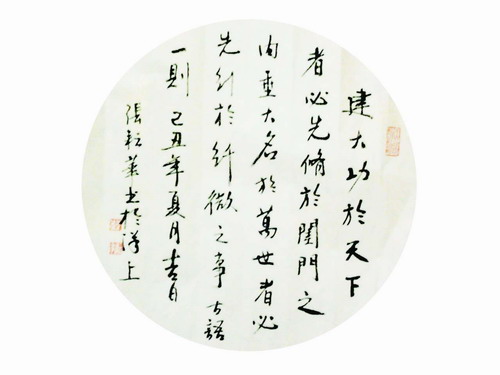 建大功於天下
者必先脩於閨門之
內垂大名於萬世者必
先行於纖微之事 古語
一則 己丑年夏月吉日
張耘華書於漢上